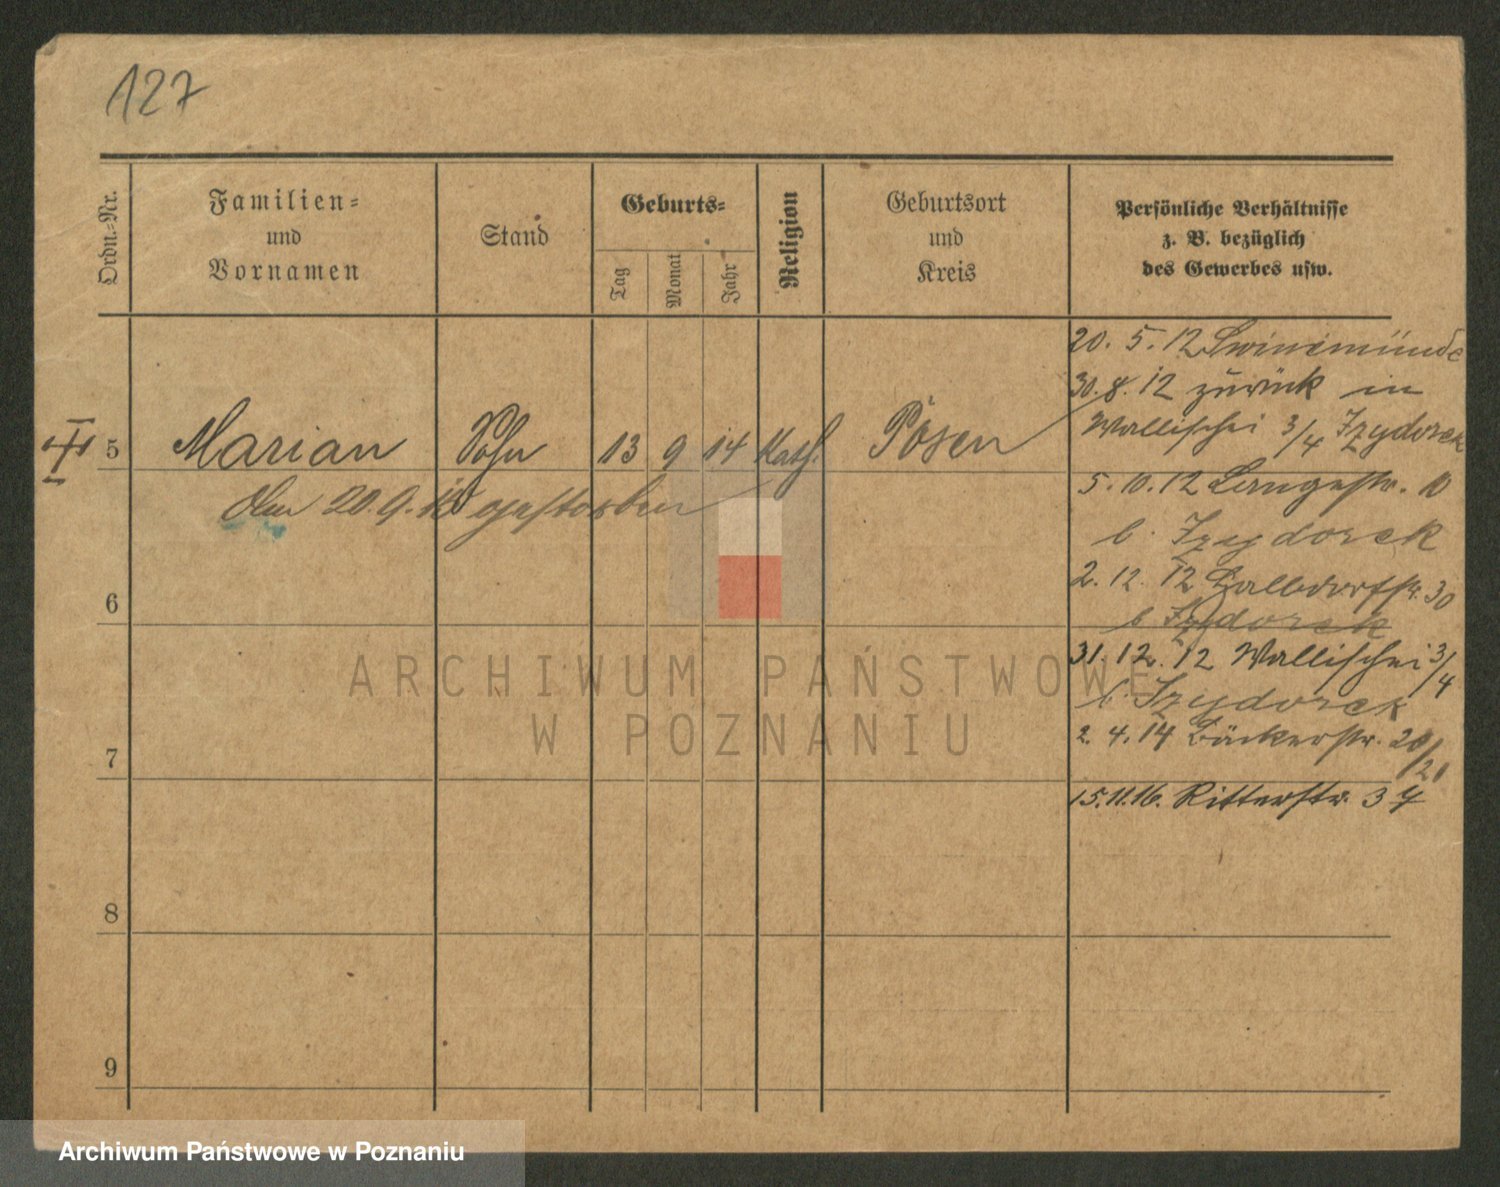 127
Ordn.-Nr.
Familien-
und
Vornamen
Stand
Geburts-
Tag
Monat
Jahr
Religion
Geburtsort
und
Kreis
Persönliche Verhältnisse
z. B. bezüglich
des Gewerbes usw.
5 Marian Sohn 13 9 14 Kath. Posen
Am 20.9. gestorben
20. 5. 12 Swinemünde
30. 8. 12 zurück in
Wallischei 3/4 Izydorek
5. 10. 12 Langestr. 10
b. Izydorek
2. 12. 12 30
b Izydorek
31. 12. 12 Wallischei 3/4
b Izydorek
2. 4. 14 Bäckerstr. 20/21
15. 11. 16. Ritterstr. 37
6
7
8
9
ARCHIWUM PAŃSTWOWE
W POZNANIU
Archiwum Państwowe w Poznaniu